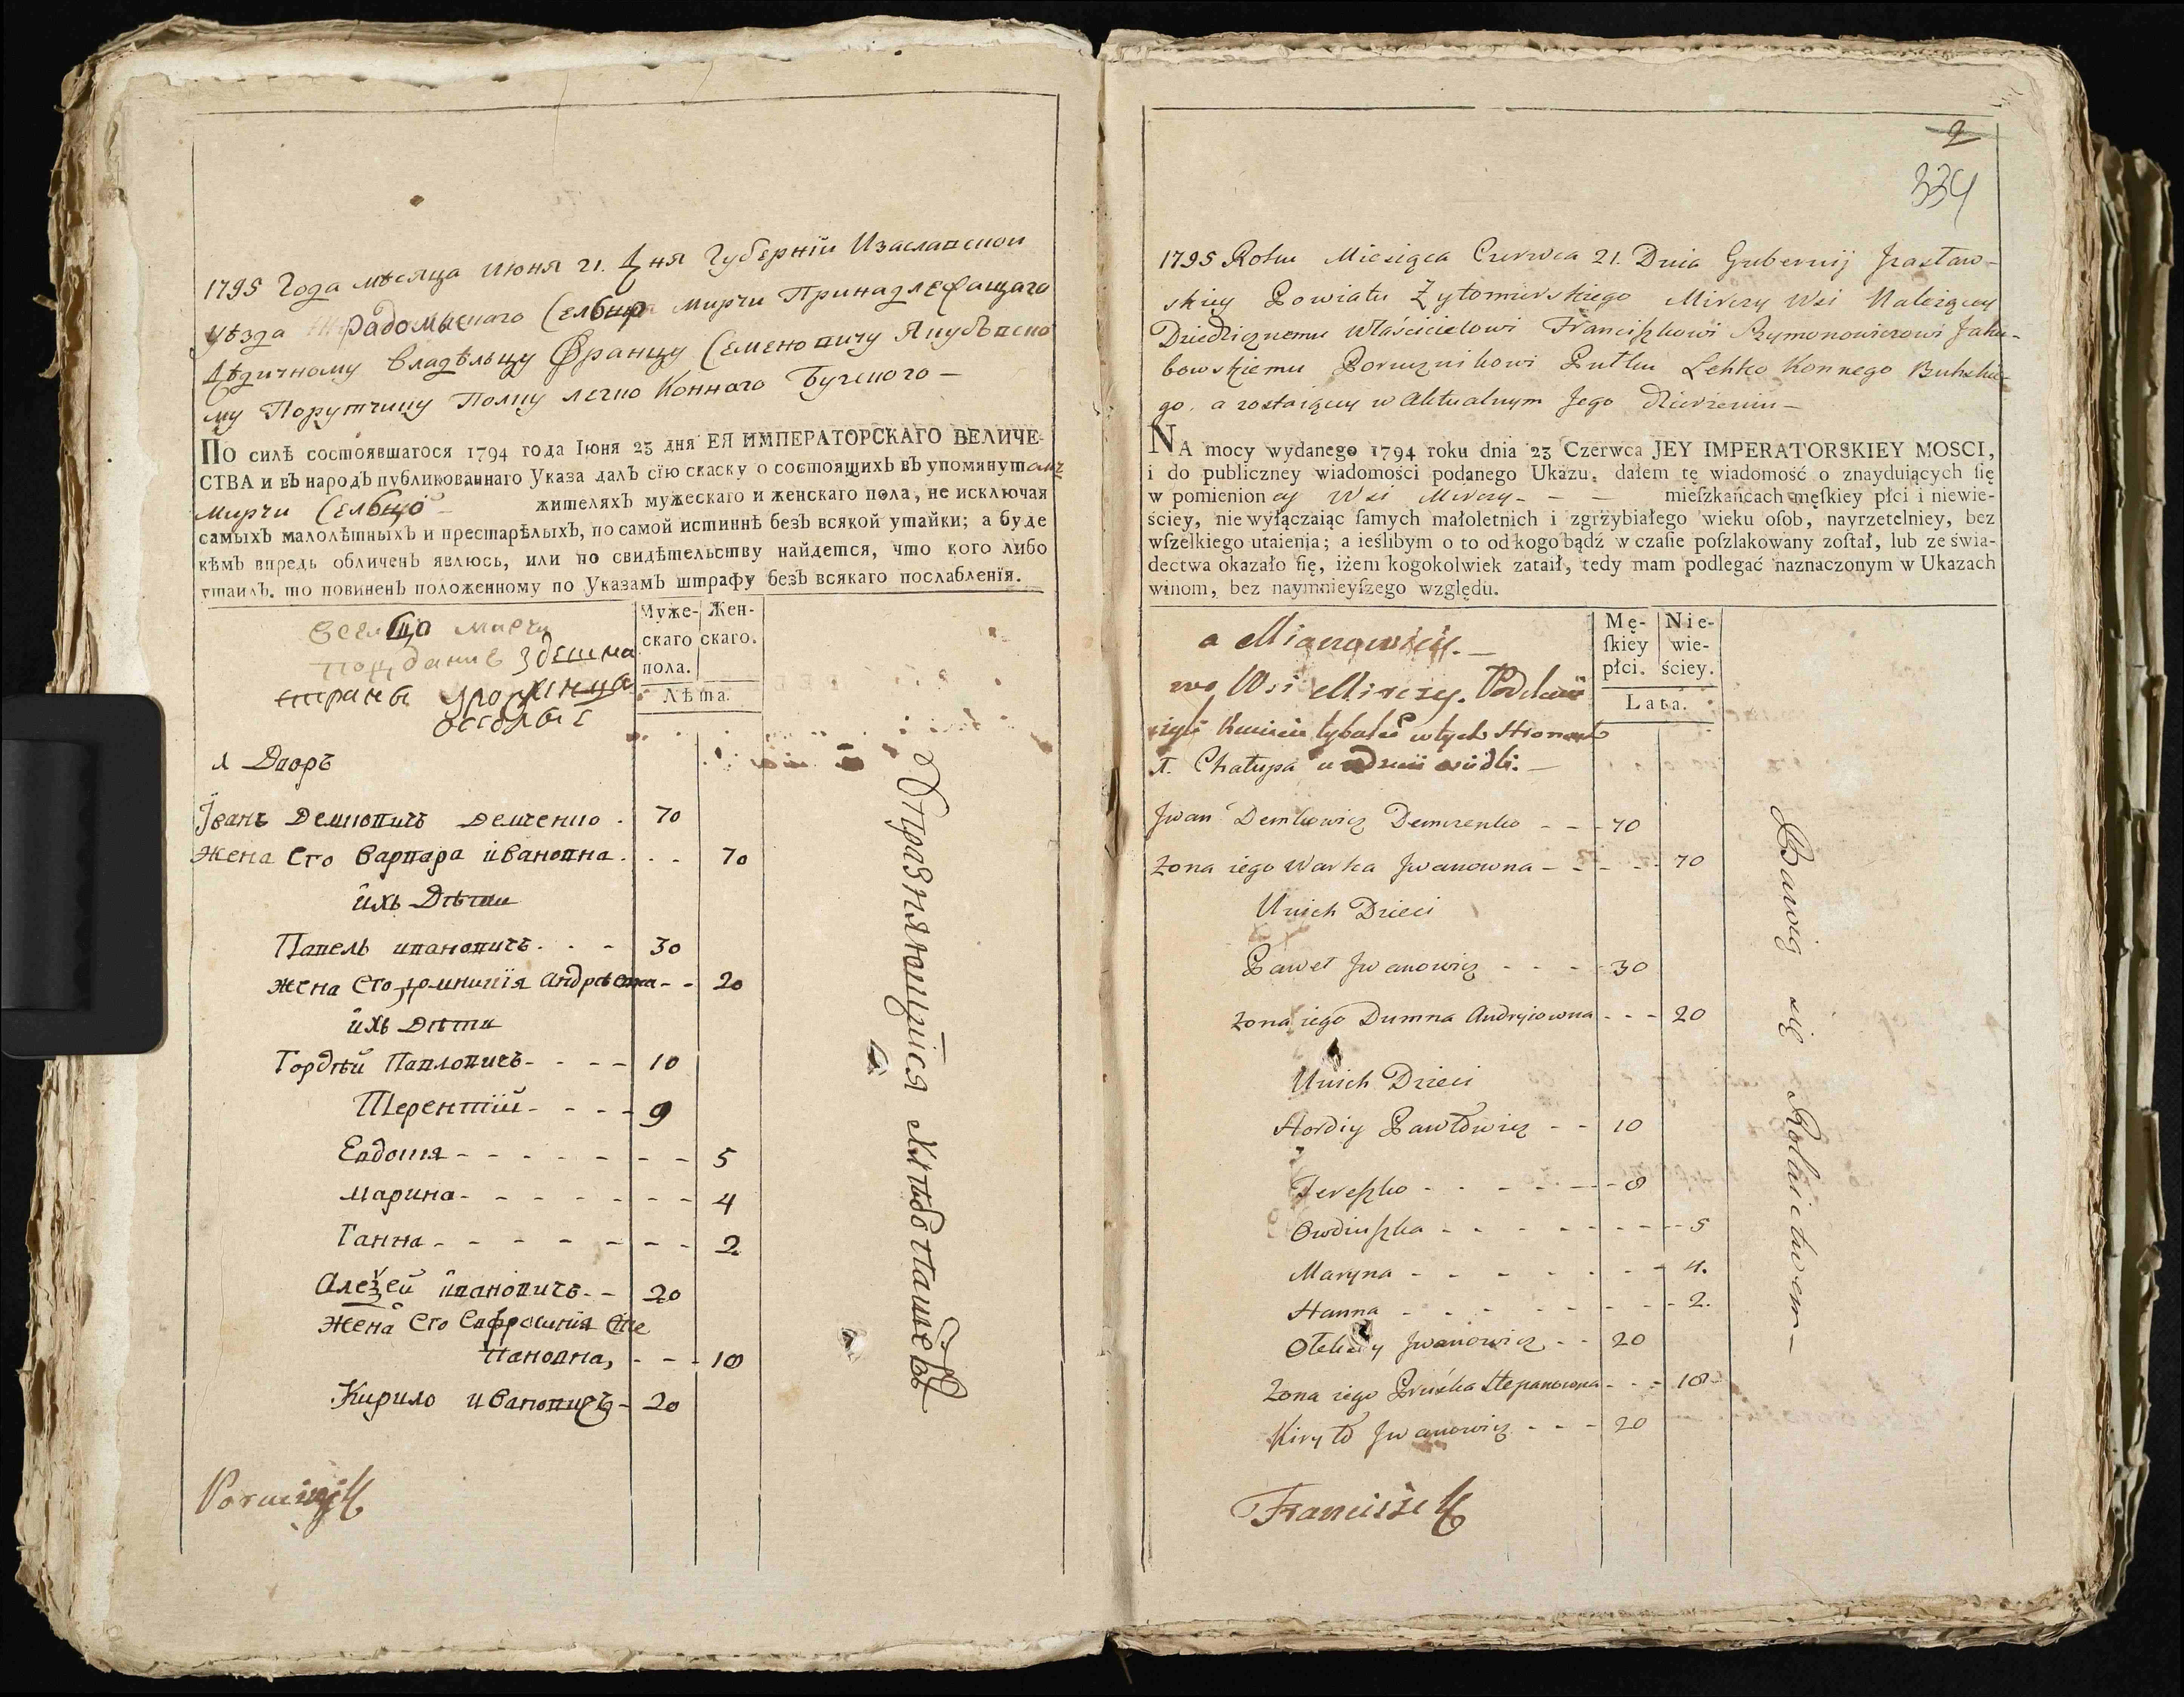 1795 Года мѣсяца июня 21. Дня Губернїи Изаславской
Уѣзда Радомыслнаго Сельца Мирчи Принадлежащаго
Дѣдичному Владѣльцу Францу Семеновичу Якубовско
му Порутчику Полку легко Конного Бугского —
По силѣ состоявшагося 1794 года Іюня 23 дня ЕЯ ИМПЕРАТОРСКАГО ВЕЛИЧЕ-
СТВА и въ народъ публикованнаго Указа далъ сїю скаску о состоящихъ въ упомянутомъ
Мирчи Сельцѣ — жителяхъ мужескаго и женскаго пола, не исключая
самыхъ малолѣтныхъ и престарѣлыхъ, по самой истиннѣ безъ всякой утайки; а буде
кѣмъ впредь обличенъ явлюсь, или по свидѣтельству найдется, что кого либо
утаилъ. то повиненъ положенному по Указамъ штрафу безъ всякаго послабленїя.
Муже-скаго пола. Жен-скаго.
Лѣта.
Мирчи
1 Дворъ
Їванъ Демковичъ Демченко . 70
Жена Его Варвара ивановна . . - 70
ихъ Дѣти
Павелъ ивановичъ . . - 30
жена Его Андрѣевна - - 20
ихъ Дѣти
Гордѣй Павловичъ - - - - 10
Терентїй - - - - 9
Евдокия - - - - - - - 5
Марина - - - - - - - 4
Ганна - - - - - - - 2
Алексей ивановичъ - - 20
Жена Его Евфросиния Сте
пановна, - - - 18
Кирило ивановичъ - 20
Упразняющїися хлѣбопашествомъ
Porucznik
2
334
1795 Roku Miesiąca Czerwca 21. Dnia Gubernij Jzasław-
skiey Powiatu Zytomirskiego Mirczy Wsi Należącey
Dziedzicznemu Właścicielowi Franciszkowi Szymonowiczowi Jaku-
bowskiemu Porucznikowi Pułku Lehko Konnego Buhskie-
go. a zostaiącey w Aktualnym Jego dzierżeniu —
NA mocy wydanego 1794 roku dnia 23 Czerwca JEY IMPERATORSKIEY MOSCI,
i do publiczney wiadomości podanego Ukazu, dałem tę wiadomość o znayduiących się
w pomienion ey Wsi Mirczy - - — mieszkańcach męskiey płci i niewie-
ściey, nie wyłączaiąc samych małoletnich i zgrzybiałego wieku osob, nayrzetelniey, bez
wszelkiego utaienia; a ieślibym o to od kogo bądź w czasie poszlakowany został, lub ze świa-
dectwa okazało się, iżem kogokolwiek zataił, tedy mam podlegać naznaczonym w Ukazach
winom, bez naymnieyszego względu.
Mę-skiey płci. Nie-wie-ściey.
Lata.
a Mianowicie. —
we Wsi Mirczy. Poddani
1. Chałupa
Jwan Demkowicz Demczenko - - - 70
Zona iego Warka Jwanowna - - - - - 70
U nich Dzieci
Paweł Jwanowicz - - - - 30
Zona iego Dumna Andryiowna - - - 20
U nich Dzieci
Hordiy Pawłowicz - - 10
Tereszko - - - - - - - 8
Owdiuszka - - - - - - - - 5
Maryna - - - - - - - 4.
Hanna - - - - - - - 2.
Jwanowicz - - 20
Zona iego Pruśka Stepanowna - - - 18
Kiryło Jwanowicz - - - 20
Bawią się Rolnictwem —
Franciszek